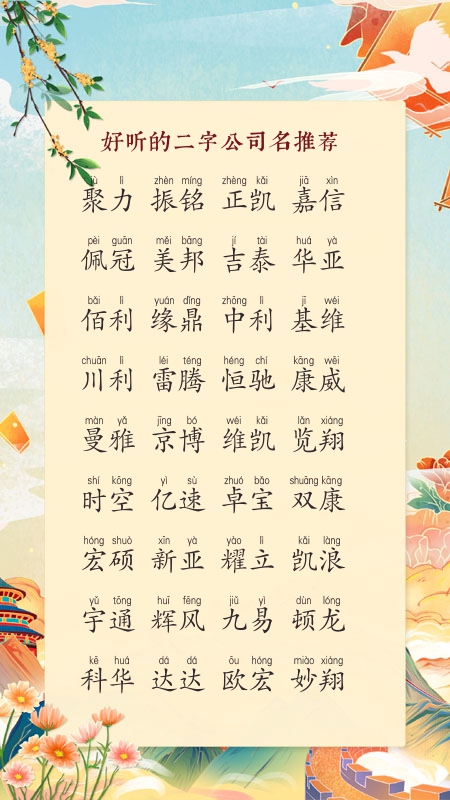 好听的二字公司名推荐
jù lì zhèn míng zhèng kǎi jiā xìn
聚力 振铭 正凯 嘉信
pèi guān měi bāng jí tài huá yà
佩冠 美邦 吉泰 华亚
bǎi lì yuán dǐng zhōng lì jī wéi
佰利 缘鼎 中利 基维
chuān lì léi téng héng chí kāng wēi
川利 雷腾 恒驰 康威
màn yǎ jīng bó wéi kǎi lǎn xiáng
曼雅 京博 维凯 览翔
shí kōng yì sù zhuó bǎo shuāng kāng
时空 亿速 卓宝 双康
hóng shuò xīn yà yào lì kǎi làng
宏硕 新亚 耀立 凯浪
yǔ tōng huī fēng jiǔ yì dùn lóng
宇通 辉风 九易 顿龙
kē huá dá dá ōu hóng miào xiáng
科华 达达 欧宏 妙翔